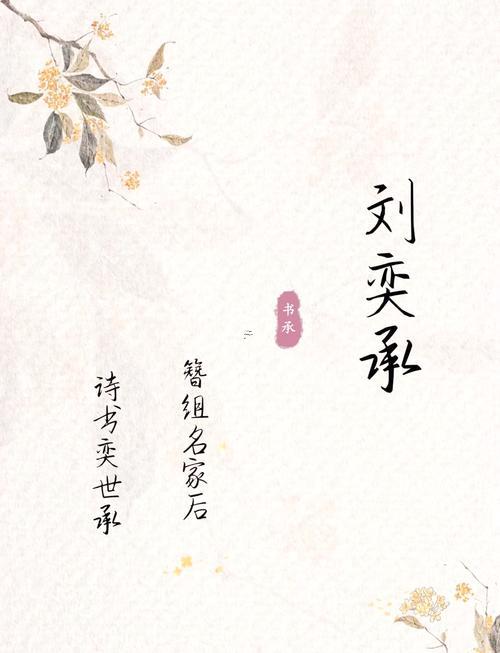 刘奕承
书承
簪组名家后
诗书奕世承